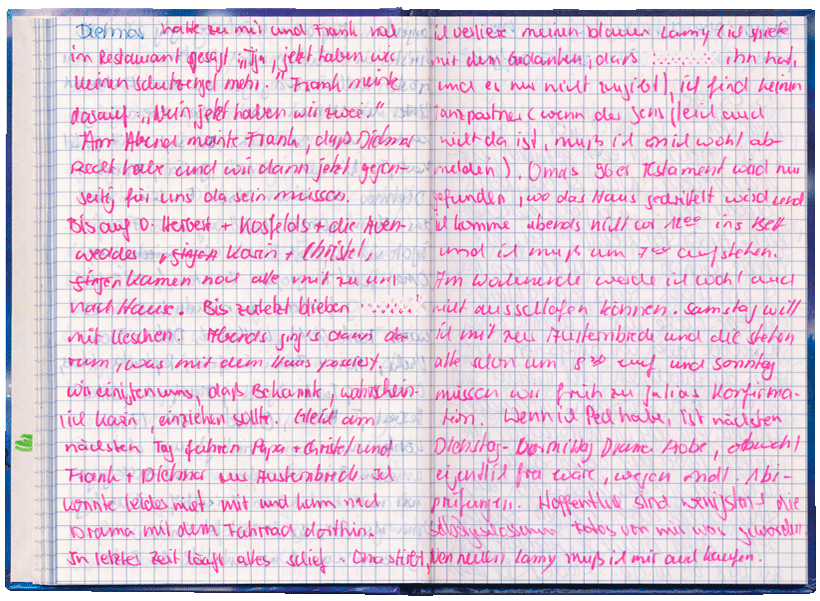 Dietmar hatte zu mir und Frank noch
im Restaurant gesagt „Tja, jetzt haben wir
keinen Schutzengel mehr." Frank meinte
darauf „Nein, jetzt haben wir zwei."
Am Abend meinte Frank, daß Dietmar
Recht habe und wir dann jetzt gegen-
seitig für uns da sein müssen.
Bis auf O. Herbert + Kosfelds + die Aven-
weddes, gingen Karin + Christel,
gingen kamen noch alle mit zu uns
nach Hause. Bis zuletzt blieben
mit Lieschen. Abends ging's dann da-
rum, was mit dem Haus passiert,
wir einigten uns, daß Bekannte, wahrschein-
lich Karin, einziehen sollte. Gleich am
nächsten Tag fuhren Papa + Christel und
Frank + Dietmar zur Austernbrede. Ich
konnte leider nicht mit und kam nach
Drama mit dem Fahrrad dorthin.
In letzter Zeit läuft alles schief. Oma stirbt,
ich verliere meinen blauen Lamy (ich spiele
mit dem Gedanken, daß ihn hat,
und es nur nicht zugibt), ich find keinen
Tanzpartner (wenn der Jens gleich auch
nicht da ist, muß ich mich wohl ab-
melden). Omas 96er Testament wird nun
gefunden, wo das Haus gedrittelt wird und
ich komme abends nicht vor 12⁰⁰ ins Bett
und ich muß um 7⁰⁰ aufstehen.
Am Wochenende werde ich wohl auch
nicht ausschlafen können. Samstag will
ich mit zur Austernbrede und die stehen
alle schon um 8³⁰ auf und Sonntag
müssen wir früh zu Julias Konfirma-
tion. Wenn ich Pech habe, ist nächsten
Dienstag-Vormittag Drama Probe, obwohl
eigentlich frei wäre, wegen mdl. Abi-
prüfungen. Hoffentlich sind wenigstens die
Fotos von mir was geworden.
Den neuen Lamy muß ich mir auch kaufen.